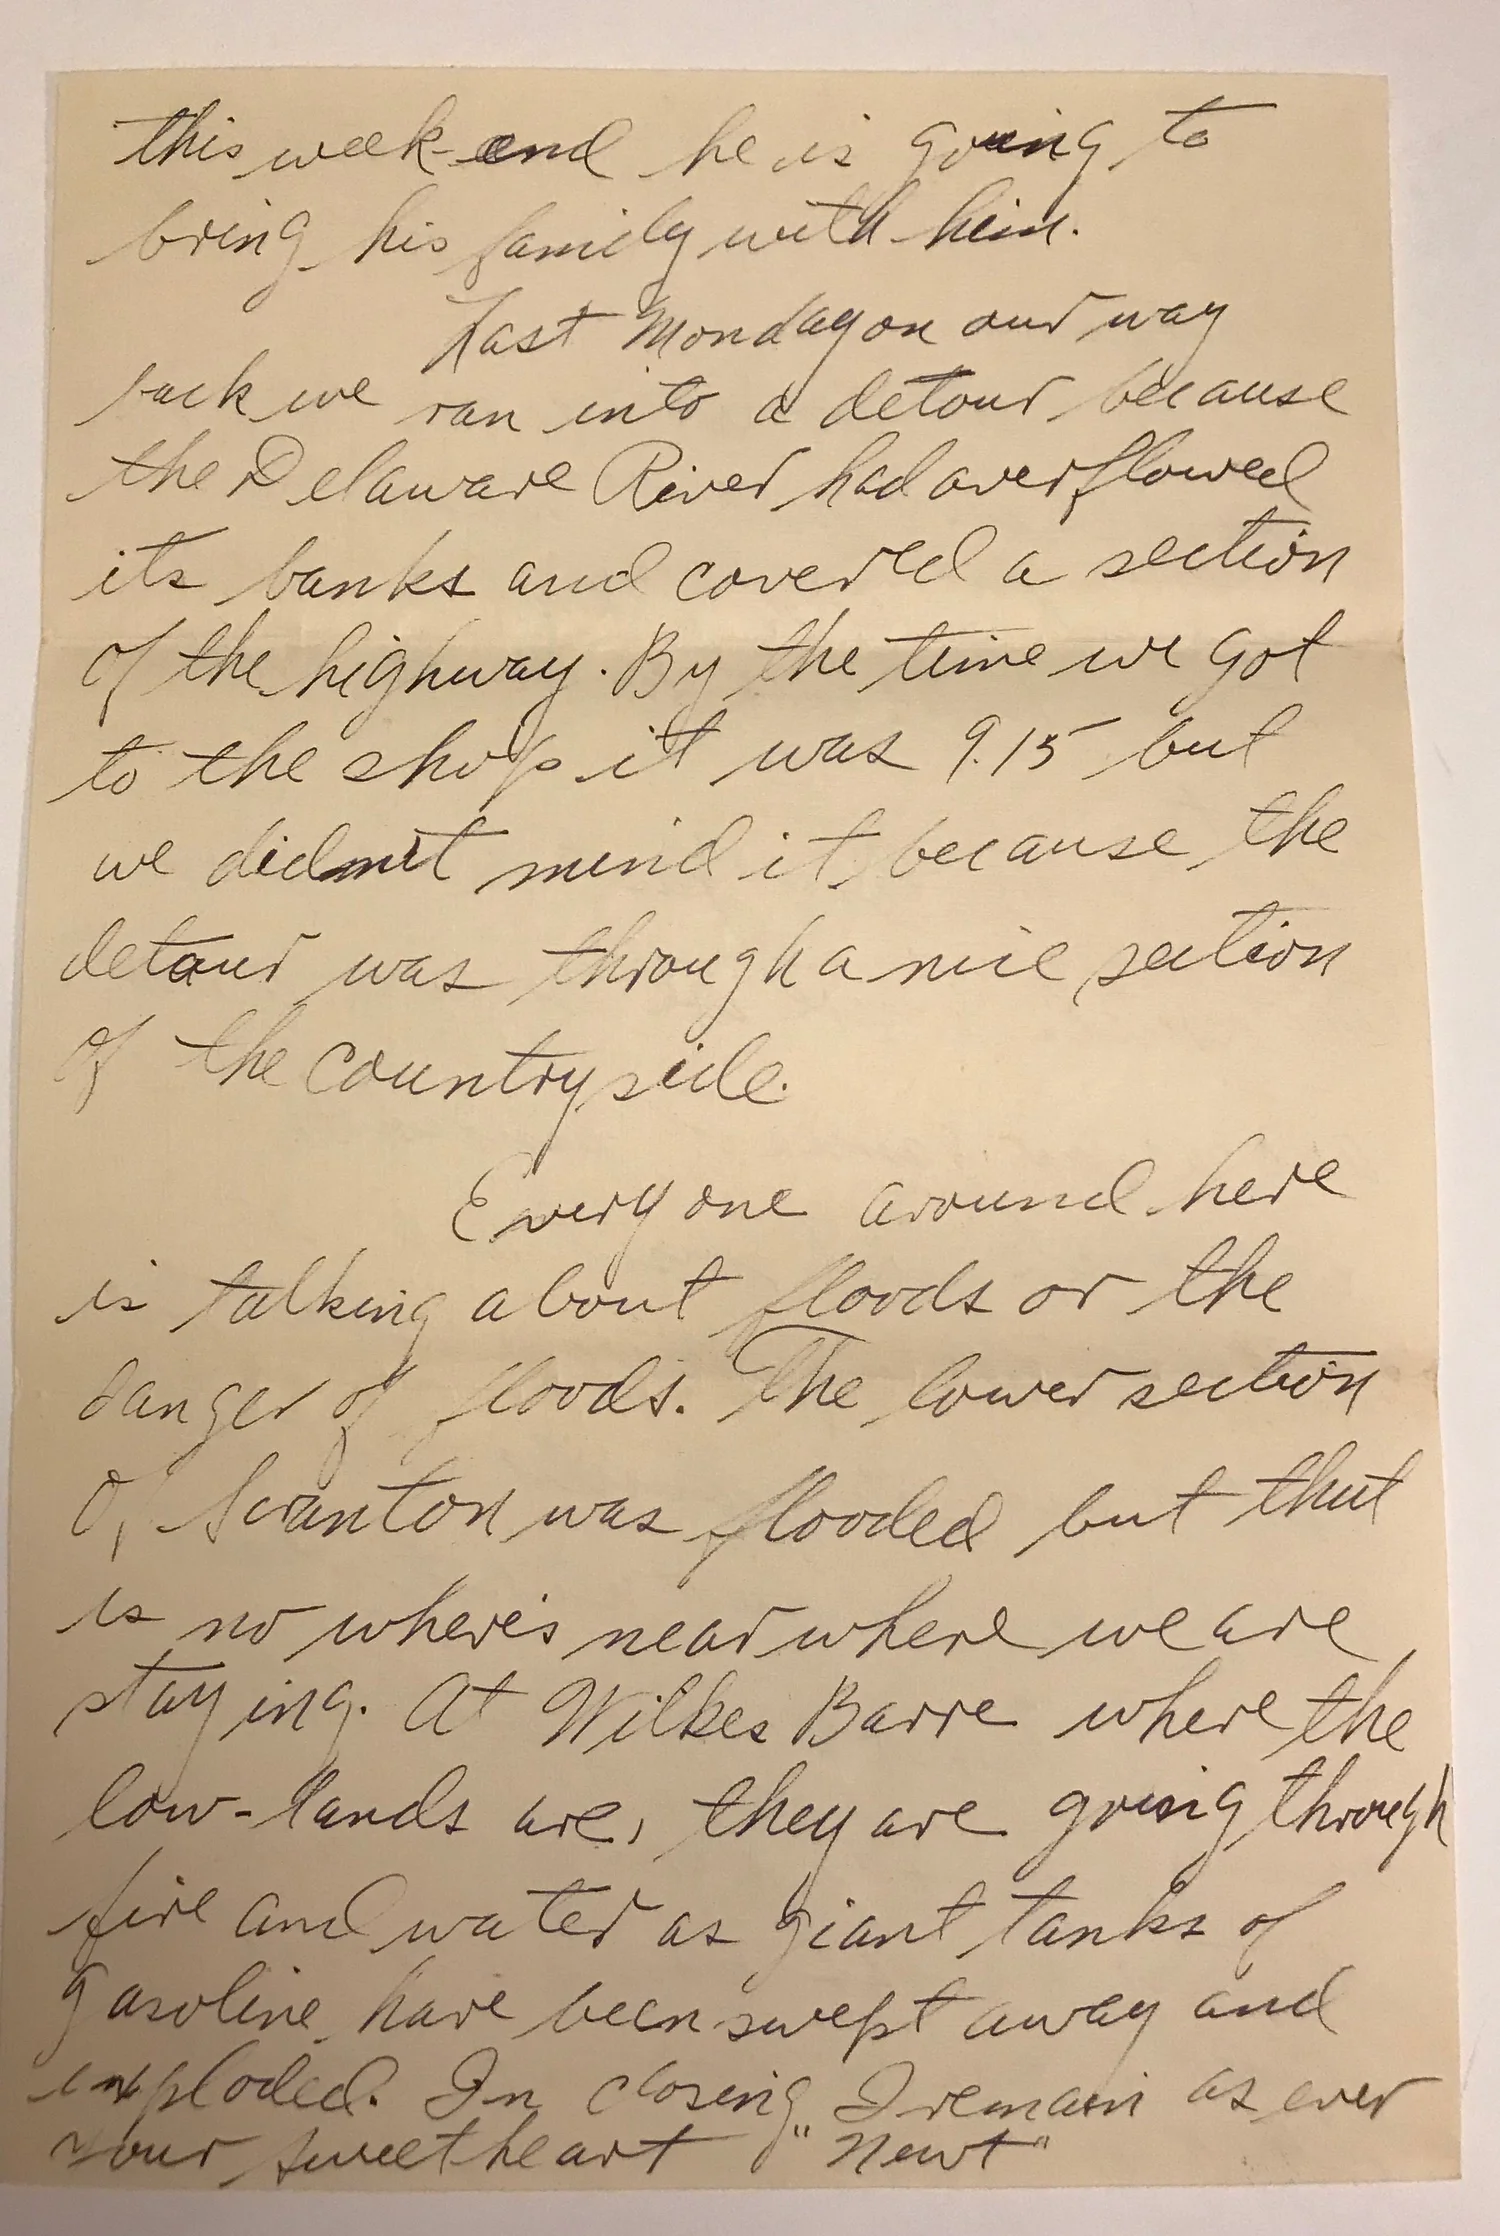 this week-end he is going to
bring his family with him.
Last Monday on our way
back we ran into a detour because
the Delaware River had overflowed
its banks and covered a section
of the highway. By the time we got
to the shop it was 9.15 but
we didn't mind it, because the
detour was through a nice section
of the countryside.
Everyone around here
is talking about floods or the
danger of floods. The lower section
of Scranton was flooded but that
is no where's near where we are
staying. At Wilkes Barre where the
low-lands are, they are going through
fire and water as giant tanks of
gasoline have been swept away and
exploded. In closing, I remain as ever
your sweetheart "Newt"